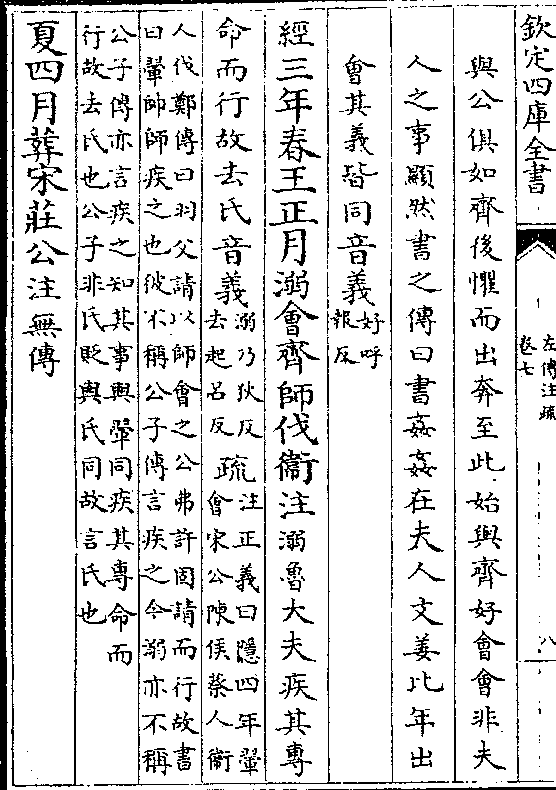 欽定四庫全書
左傳注疏
卷七
八
與公俱如齊後懼而出奔至此始與齊好會會非夫
人之事顯然書之傳曰書姦姦在夫人文姜比年出
會其義皆同音義好呼
報反
經三年春王正月溺會齊師伐衞注溺魯大夫疾其專
命而行故去氏音義溺乃狄反
去起呂反疏注正義曰隱四年翬
會宋公陳侯蔡人衞
人伐鄭傳曰羽父請以師會之公弗許固請而行故書
曰翬帥師疾之也彼不稱公子傳言疾之今溺亦不稱
公子傳亦言疾之知其事與翬同疾其專命而
行故去氏也公子非氏貶與氏同故言氏也
夏四月葬宋莊公注無傳